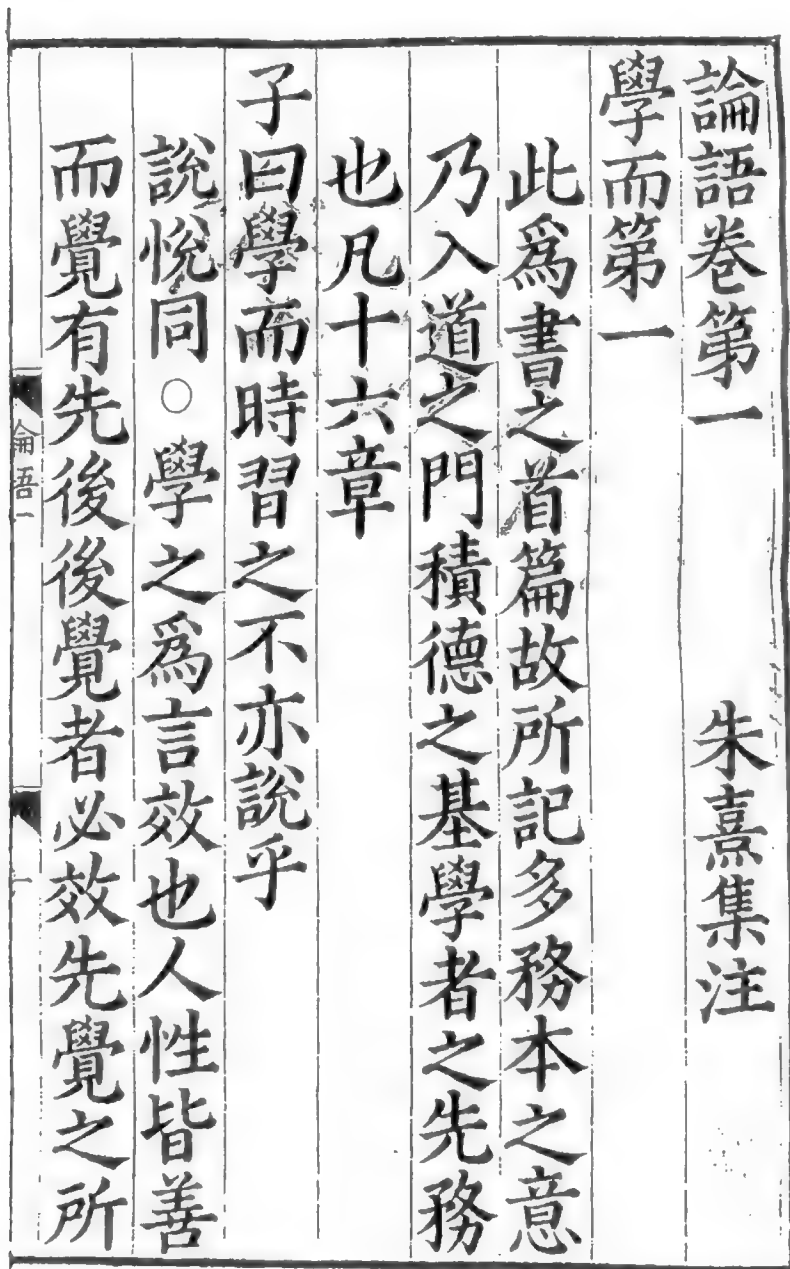 論語卷第一 朱熹集注
學而第一
此爲書之首篇故所記多務本之意
乃入道之門積德之基學者之先務
也凡十六章
子曰學而時習之不亦說乎
說悅同○學之爲言效也人性皆善
而覺有先後後覺者必效先覺之所
論語一